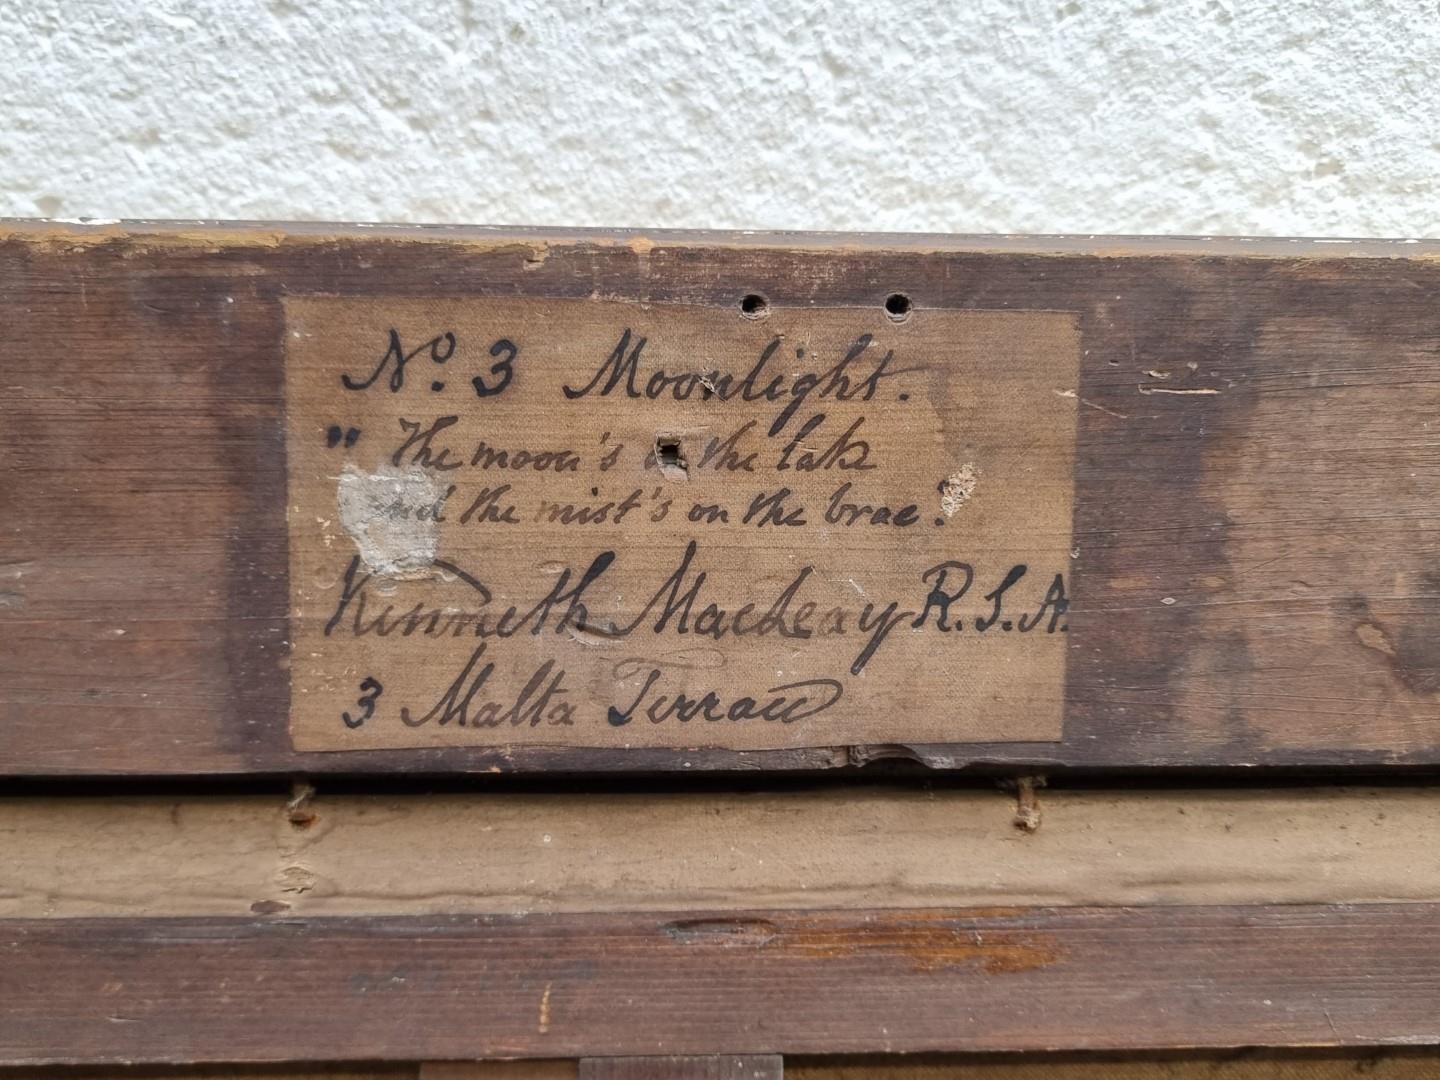 No. 3 Moonlight.
" The moon's on the lake
and the mist's on the brae."
Kenneth MacLeay R.S.A.
3 Malta Terrace